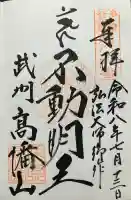 奉拝
令和八年七月十三日
弘法大師御作
不動明王
武州 高幡山